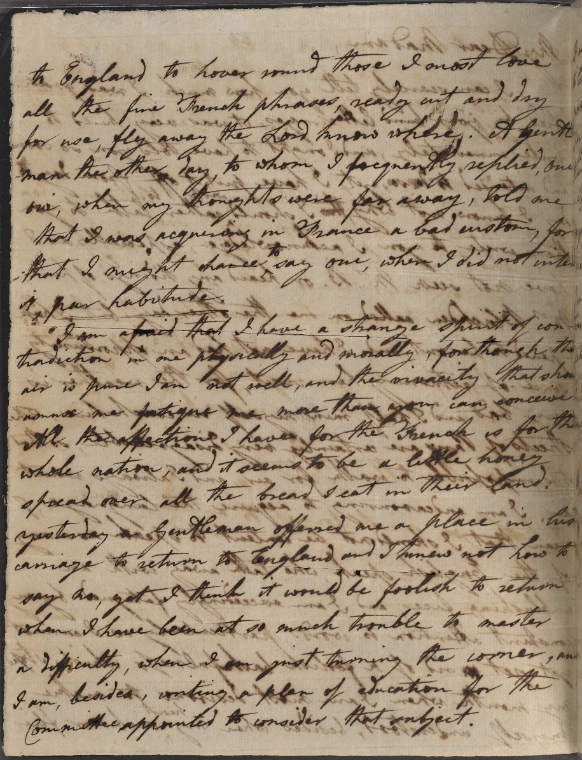 to England to hover round those I most love
all the fine French phrases, ready cut and dry
for use, fly away the Lord know where. A gentle
man the other day, to whom I frequently replied, oui
oui, when my thoughts were far away, told me
that I was acquiring in France a bad custom, for
that I might chance to say oui, when I did not inten
it, par habitude.
I am afraid that I have a strange spirit of con-
tradiction in me physically and morally, for though the
air is pure I am not well, and the vivacity that shou
amuse me fatigues me more than you can conceive
All the affection I have for the French is for the
whole nation, and it seems to be a little honey
spread over all the bread I eat in their land.
yesterday a Gentleman offered me a place in his
carriage to return to England and I knew not how to
say no, yet I think it would be foolish to return
when I have been at so much trouble to master
a difficulty, when I am just turning the corner, and
I am, besides, writing a plan of education for the
Committee appointed to consider that subject.